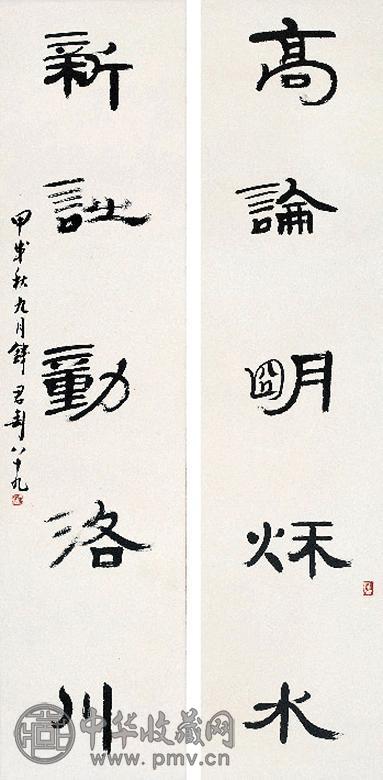 高論朙秌水
新詩動洛川
甲戌秋九月錢君匋八十九
中华收藏网
www.pmv.cn